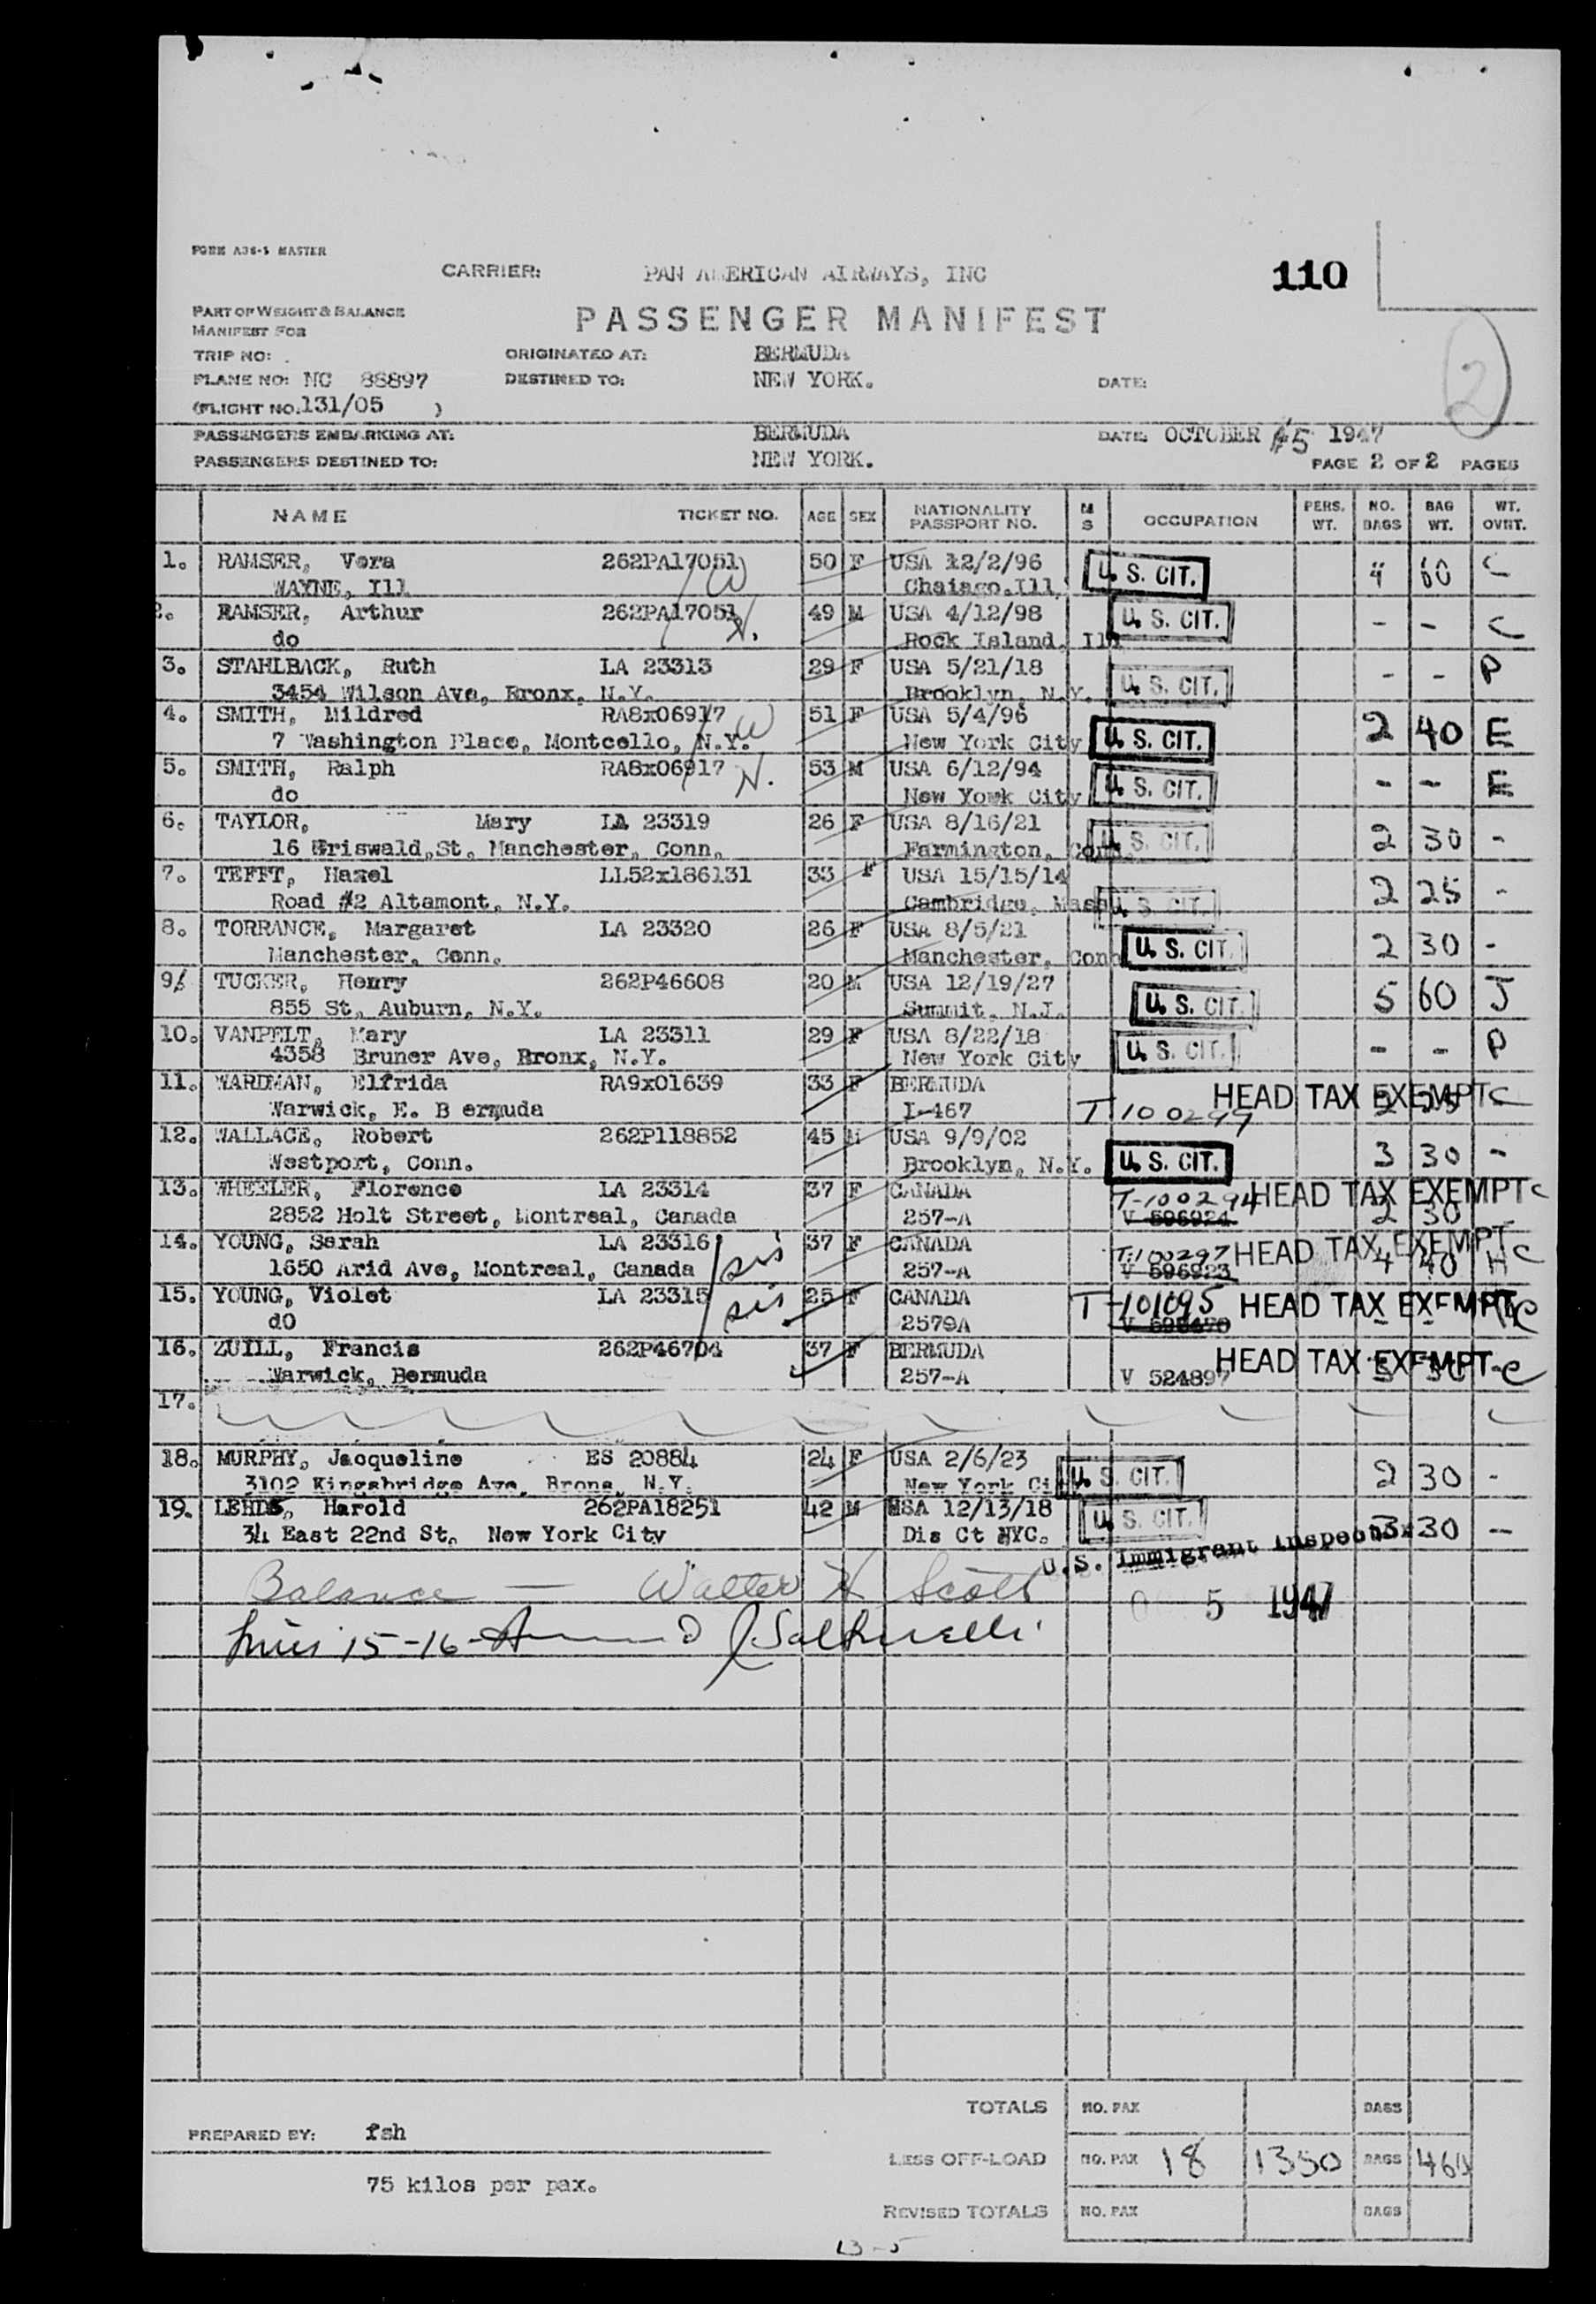 FORM A36-1 MASTER
CARRIER: PAN AMERICAN AIRWAYS, INC
110
PART OF WEIGHT & BALANCE
MANIFEST FOR
PASSENGER MANIFEST
2
TRIP NO: ORIGINATED AT: BERMUDA
PLANE NO: NC 88897 DESTINED TO: NEW YORK. DATE:
(FLIGHT NO. 131/05 )
PASSENGERS EMBARKING AT: BERMUDA DATE: OCTOBER 5 1947
PASSENGERS DESTINED TO: NEW YORK. PAGE 2 OF 2 PAGES
NAME TICKET NO. AGE SEX NATIONALITY PASSPORT NO. M S OCCUPATION PERS. WT. NO. BAGS BAG WT. WT. OVRT.
1. RAMSER, Vera 262PA17051 W 50 F USA 12/2/96 U. S. CIT. 4 60 C
WAYNE, Ill Chaiago.Ill.
2. RAMSER, Arthur 262PA17051 H. 49 M USA 4/12/98 U. S. CIT. - - C
do Rock Island, Ill
3. STAHLBACK, Ruth LA 23313 29 F USA 5/21/18 U. S. CIT. - - P
3454 Wilson Ave, Bronx, N.Y. Brooklyn, N.Y.
4. SMITH, Mildred RA8x06917 W 51 F USA 5/4/96 U. S. CIT. 2 40 E
7 Washington Place, Montcello, N.Y. New York City
5. SMITH, Ralph RA8x06917 H. 53 M USA 6/12/94 U. S. CIT. - - E
do New York City
6. TAYLOR, Mary LA 23319 26 F USA 8/16/21 U. S. CIT. 2 30 -
16 Griswald,St. Manchester, Conn. Farmington, Conn.
7. TEFFT, Hazel LL52x186131 33 F USA 15/15/14 U. S. CIT. 2 25 -
Road #2 Altamont, N.Y. Cambridge, Mass
8. TORRANCE, Margaret LA 23320 26 F USA 8/5/21 U. S. CIT. 2 30 -
Manchester, Conn. Manchester, Conn
9. TUCKER, Henry 262P46608 20 M USA 12/19/27 U. S. CIT. 5 60 J
855 St, Auburn, N.Y. Summit, N.J.
10. VANPELT, Mary LA 23311 29 F USA 8/22/18 U. S. CIT. - - P
4358 Bruner Ave, Bronx, N.Y. New York City
11. WARDMAN, Elfrida RA9x01639 33 F BERMUDA HEAD TAX EXEMPT C
Warwick, E. B ermuda I-467 T 100299
12. WALLACE, Robert 262P118852 45 M USA 9/9/02 U. S. CIT. 3 30 -
Westport, Conn. Brooklyn, N.Y.
13. WHEELER, Florence LA 23314 37 F CANADA T-100294 HEAD TAX EXEMPT C
2852 Holt Street, Montreal, Canada 257-A V 596924 2 30
14. YOUNG, Sarah LA 23316 sis 37 F CANADA T-100297 HEAD TAX EXEMPT C
1650 Arid Ave, Montreal, Canada 257-A V 596923 4 40 H
15. YOUNG, Violet LA 23315 sis 25 F CANADA T-101095 HEAD TAX EXEMPT C
dO 2579A
16. ZUILL, Francis 262P46704 37 F BERMUDA HEAD TAX EXEMPT C
Warwick, Bermuda 257-A V 524897
17.
18. MURPHY, Jacqueline ES 20884 24 F USA 2/6/23 U. S. CIT. 2 30 -
3102 Kingsbridge Ave, Brons, N.Y. New York Ci
19. LEHDS, Harold 262PA18251 42 M USA 12/13/18 U. S. CIT. 3 30 -
34 East 22nd St. New York City Dis Ct NYC.
U.S. Immigrant Inspector
Balance — Walter H Scott
5 1947
Lines 15-16-
TOTALS NO. PAX BAGS
PREPARED BY: fsh
LESS OFF-LOAD NO. PAX 18 1350 BAGS
75 kilos per pax.
REVISED TOTALS NO. PAX BAGS